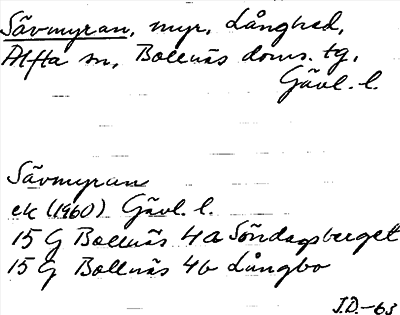 Sävmyran, myr, Långhed,
Alfta sn, Bollnäs doms. tg,
Gävl. l.
Sävmyran
ek (1960) Gävl. l.
15 G Bollnäs 4a Söndagsberget
15 G Bollnäs 4b Långbo
J.D.-63